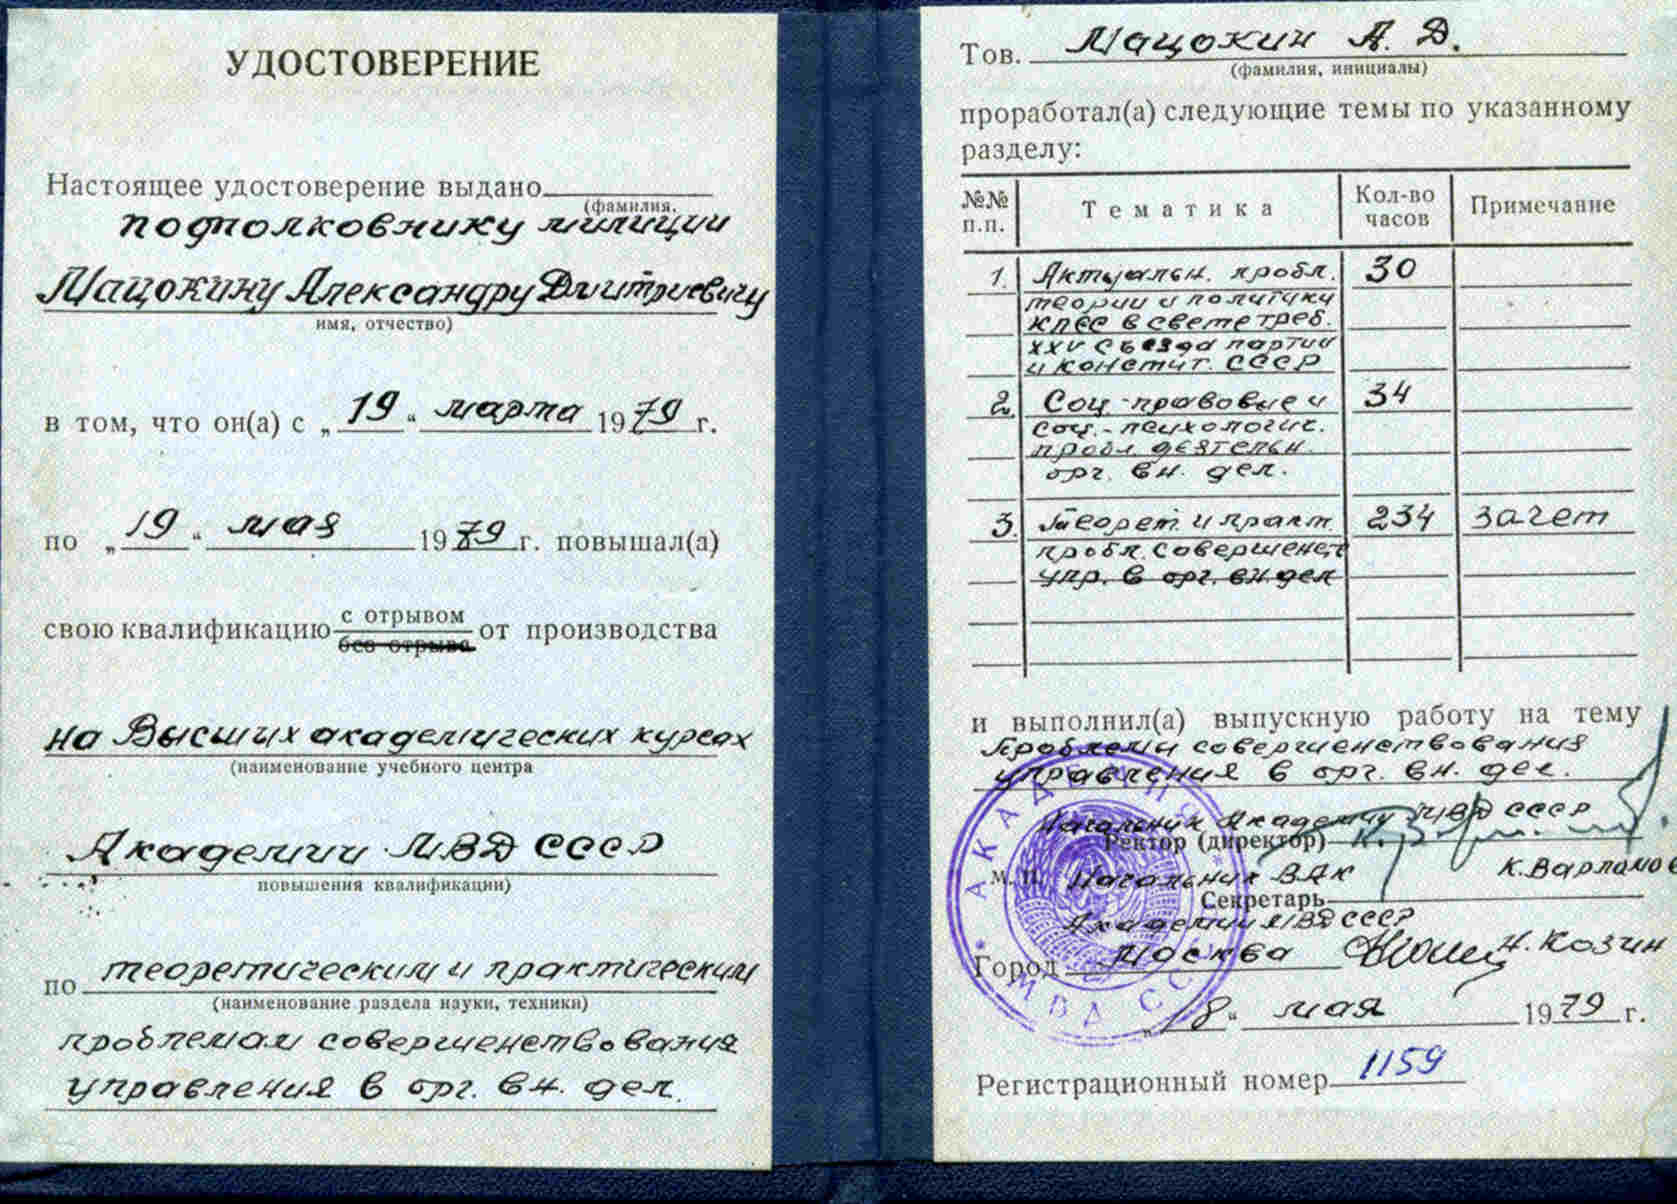 УДОСТОВЕРЕНИЕ
Настоящее удостоверение выдано
(фамилия,
подполковнику милиции
Мацокину Александру Дмитриевичу
имя, отчество)
в том, что он(а) с „19“ марта 1979 г.
по „19“ мая 1979 г. повышал(а)
с отрывом
свою квалификацию от производства
без отрыва
на Высших академических курсах
(наименование учебного центра
Академии МВД СССР
повышения квалификации)
по теоретическим и практическим
(наименование раздела науки, техники)
проблемам совершенствования
управления в орг. вн. дел.
Тов. Мацокин А. Д.
(фамилия, инициалы)
проработал(а) следующие темы по указанному
разделу:
№№ п.п. Тематика Кол-во часов Примечание
1. Актуальн. пробл. 30
теории и политики
КПСС в свете треб.
XXV съезда партии
и констит. СССР
2. Соц.-правовые и 34
соц.-психологич.
пробл. деятельн.
орг. вн. дел.
3. Теорет. и практ. 234 зачет
пробл. совершенст
упр. в орг. вн. дел
и выполнил(а) выпускную работу на тему
Проблемы совершенствования
управления в орг. вн. дел.
Начальник Академии МВД СССР
Ректор (директор)
М. П. Начальник ВАК К. Варламов
Секретарь
Академии МВД СССР
Город Москва Н. Козин
„18“ мая 1979 г.
Регистрационный номер 1159
АКАДЕМИЯ
МВД СССР